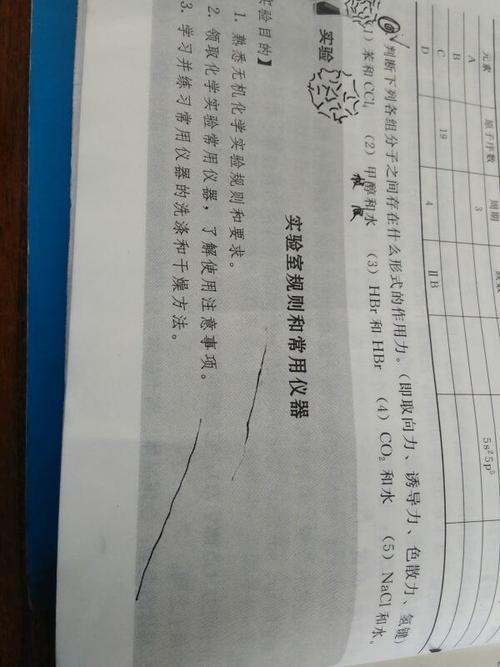 元素 原子序数 周期
A 3
B 5s²5p⁵
C 19
D 4 ⅡB
判断下列各组分子之间存在什么形式的作用力。(即取向力、诱导力、色散力、氢键)
(1) 苯和CCl₄ (2) 甲醇和水 (3) HBr 和 HBr (4) CO₂ 和水 (5) NaCl 和水。
实验
实验室规则和常用仪器
实验目的】
1. 熟悉无机化学实验规则和要求。
2. 领取化学实验常用仪器，了解使用注意事项。
3. 学习并练习常用仪器的洗涤和干燥方法。